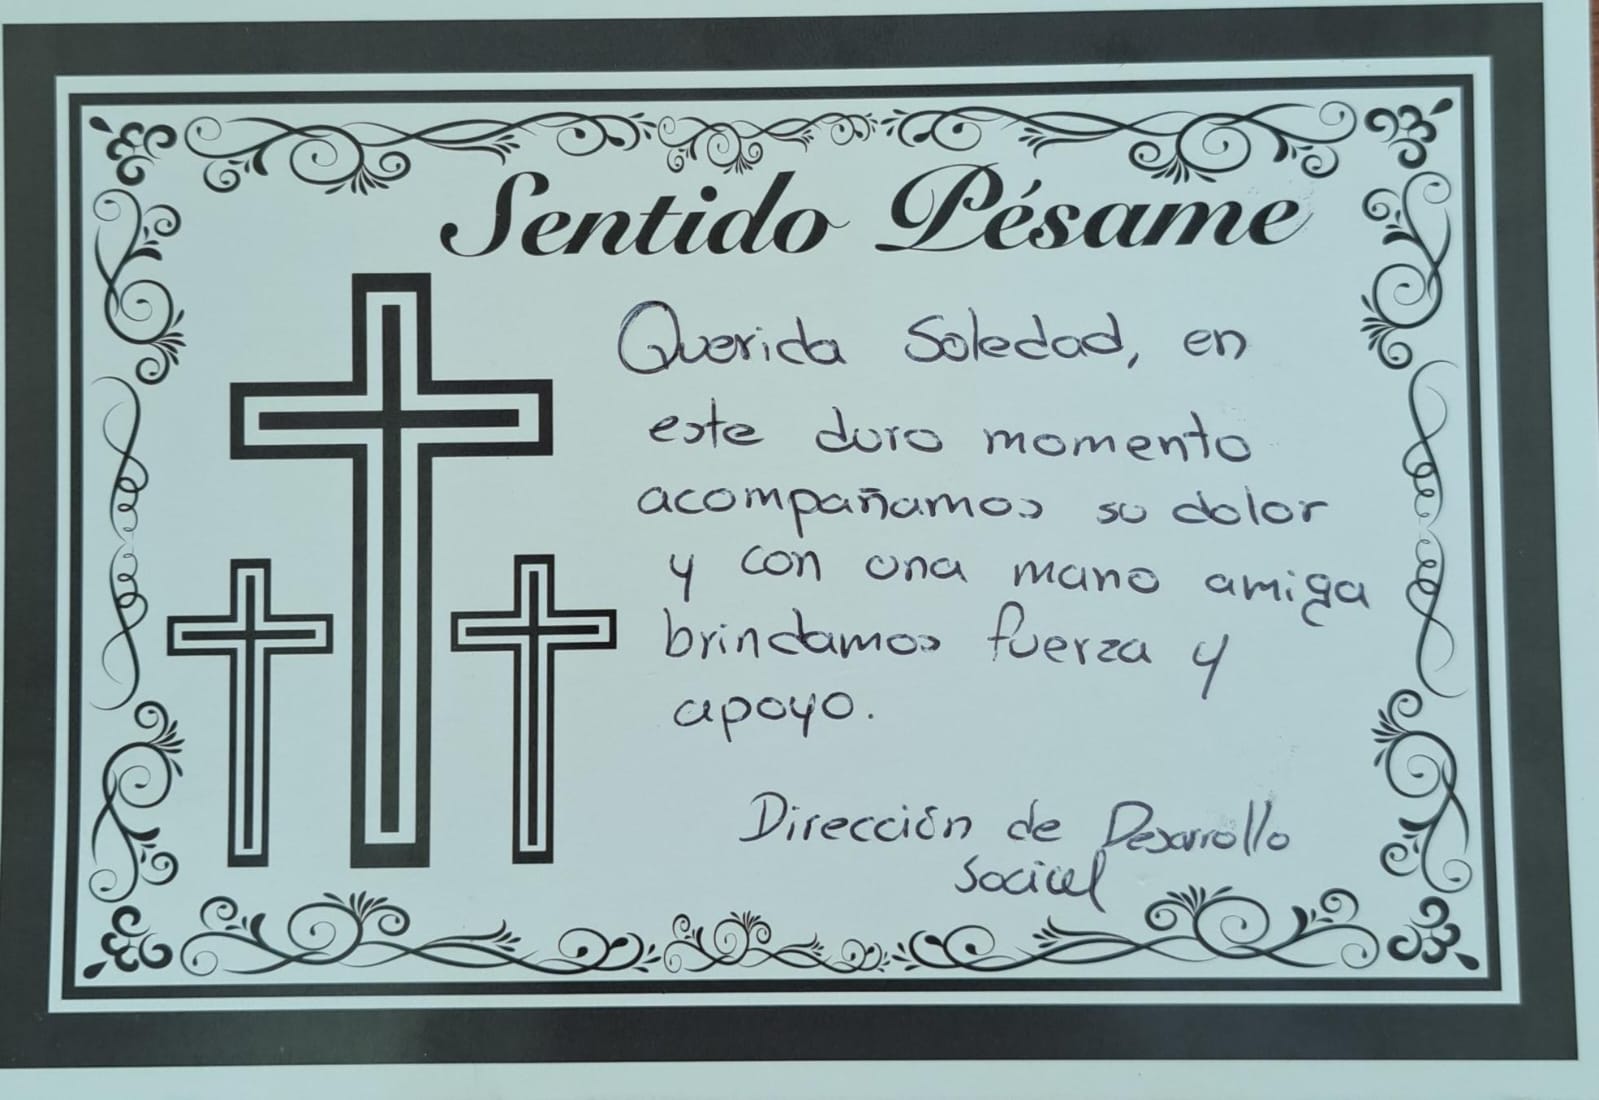 Sentido Pésame
Querida Soledad, en
este duro momento
acompañamos su dolor
y con una mano amiga
brindamos fuerza y
apoyo.
Dirección de Desarrollo
Social